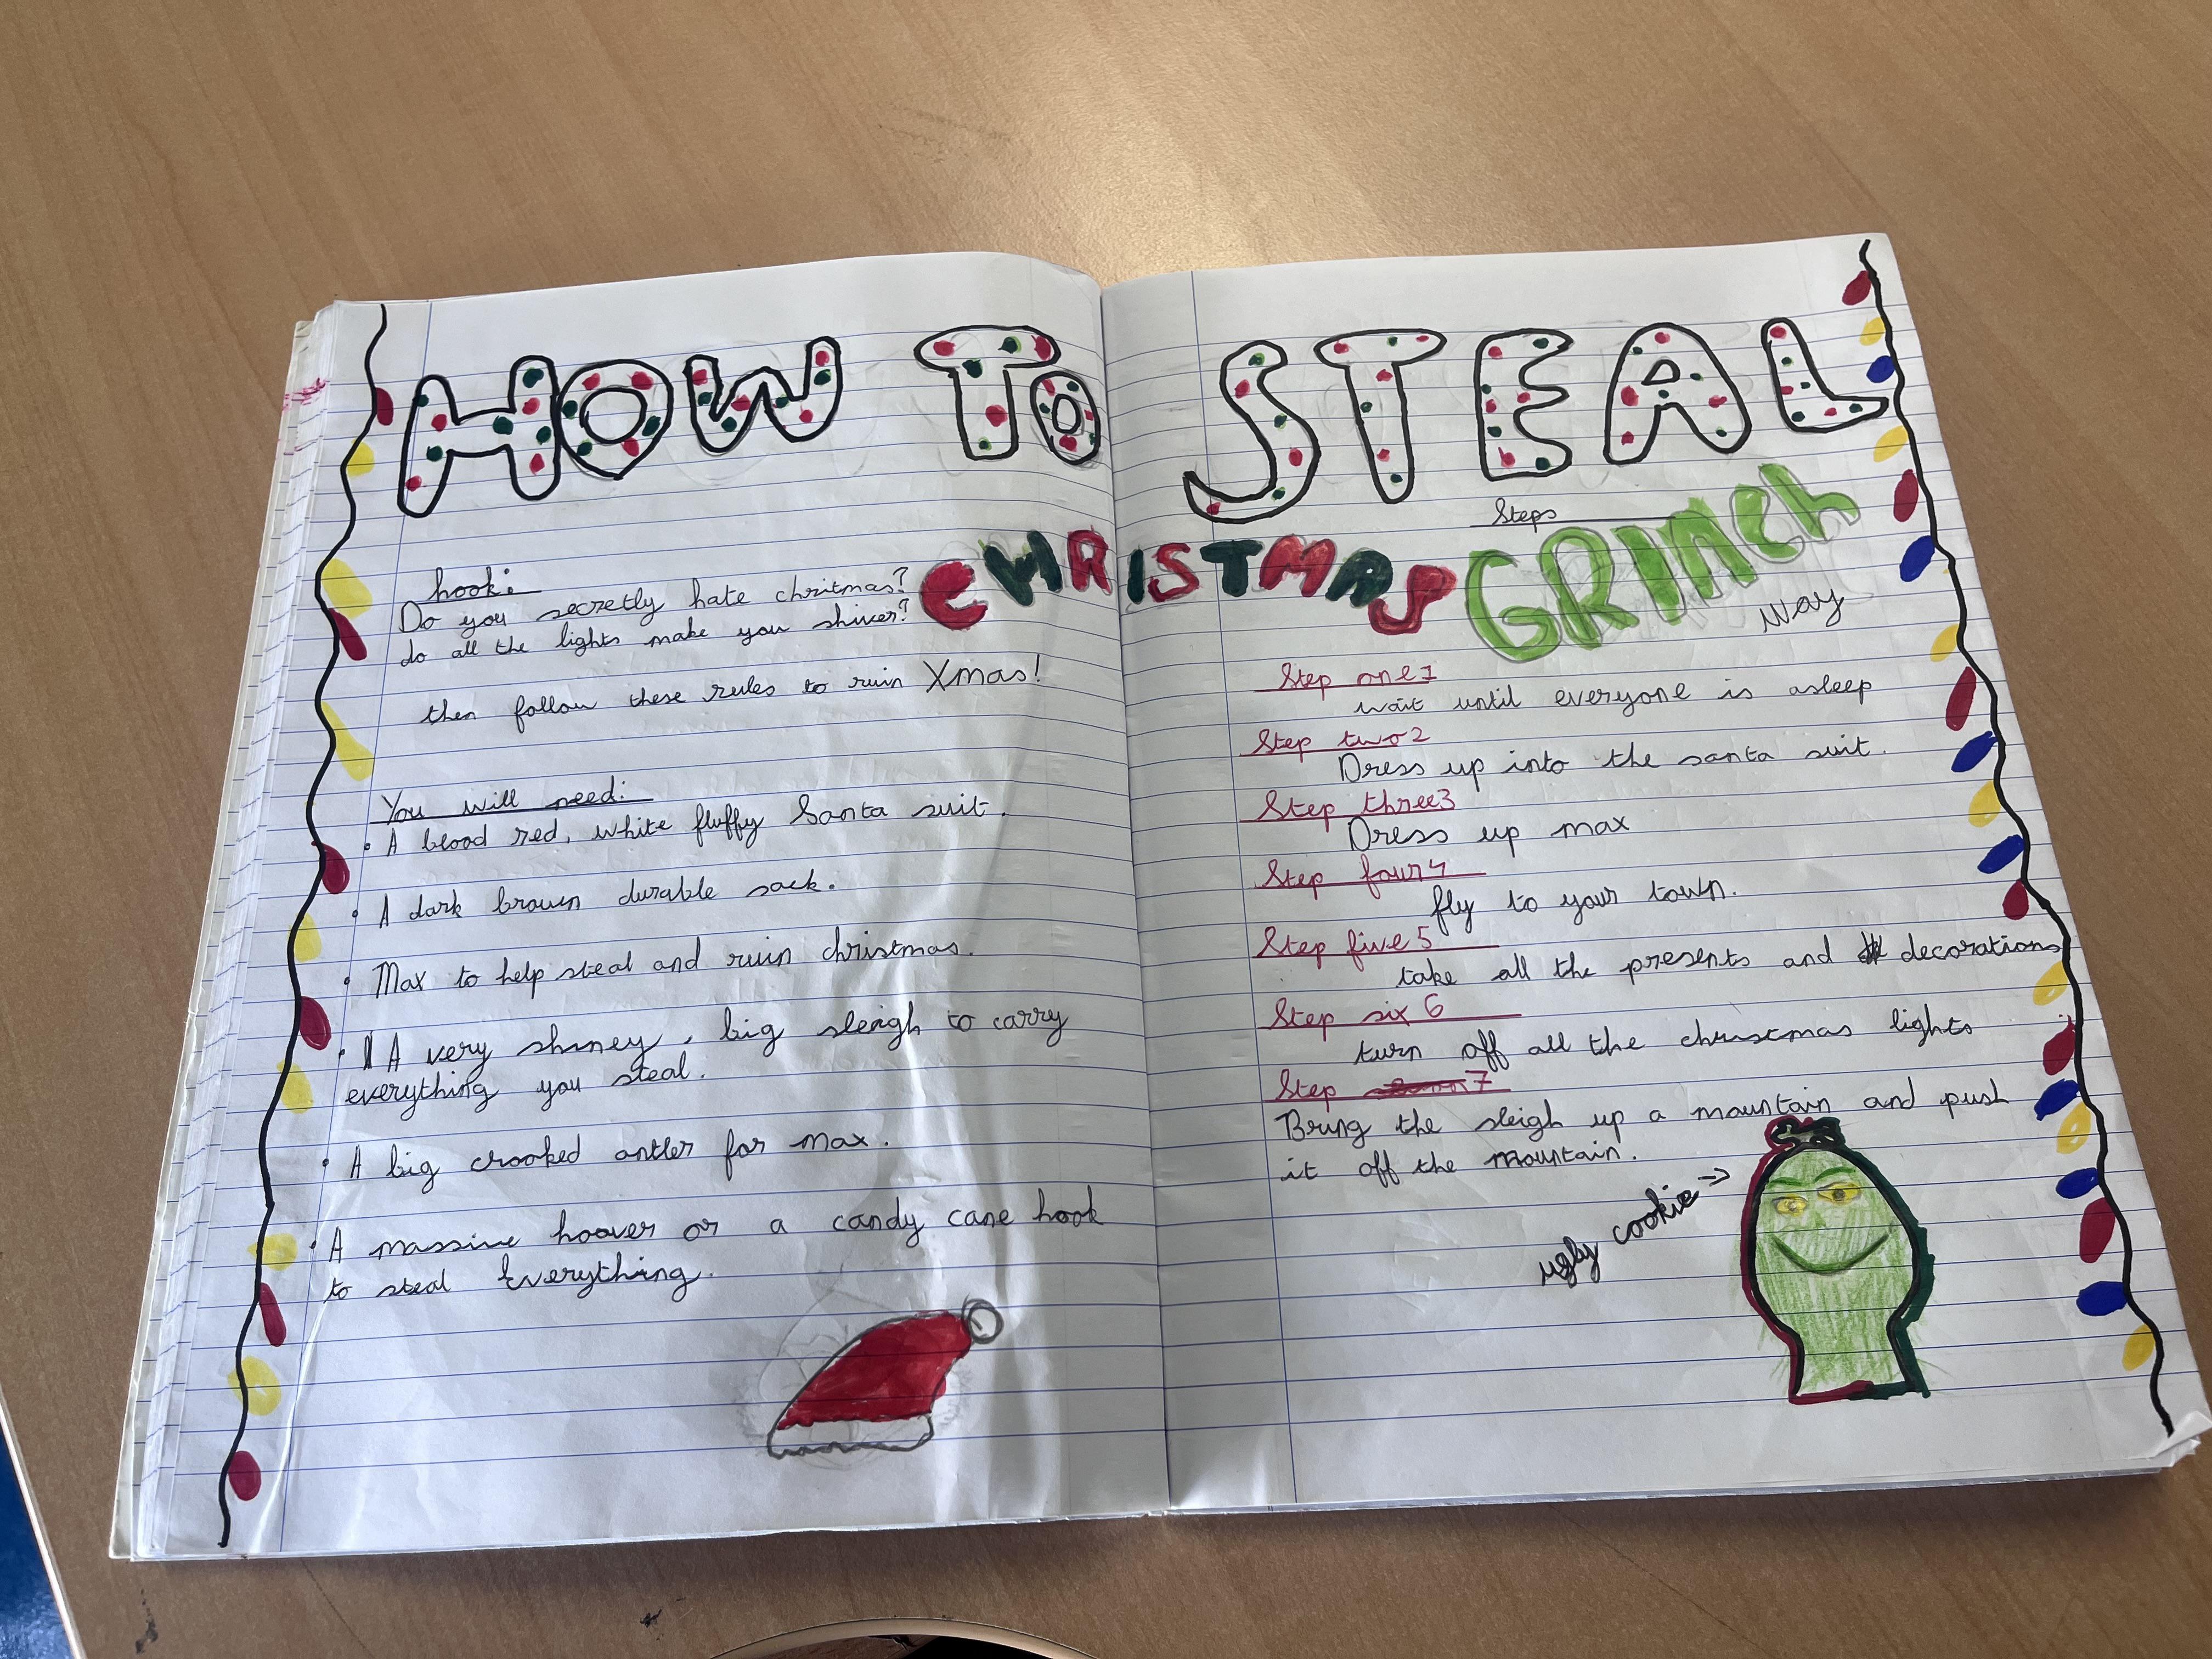 HOW TO STEAL
CHRISTMAS GRINCH
way
hook:
Do you secretly hate chritmas?
do all the lights make you shiver?
then follow these rules to ruin Xmas!
You will need:
• A blood red, white fluffy Santa suit.
• A dark brown durable sack.
• Max to help steal and ruin christmas.
• A very shiney, big sleigh to carry
everything you steal.
• A big crooked antler for max.
• A massive hoover or a candy cane hook
to steal Everything.
Steps
Step one 1
wait until everyone is asleep
Step two 2
Dress up into the santa suit.
Step three 3
Dress up max
Step four 4
fly to your town.
Step five 5
take all the presents and decorations
Step six 6
turn off all the christmas lights
Step 7
Bring the sleigh up a mountain and push
it off the mountain.
ugly cookie →